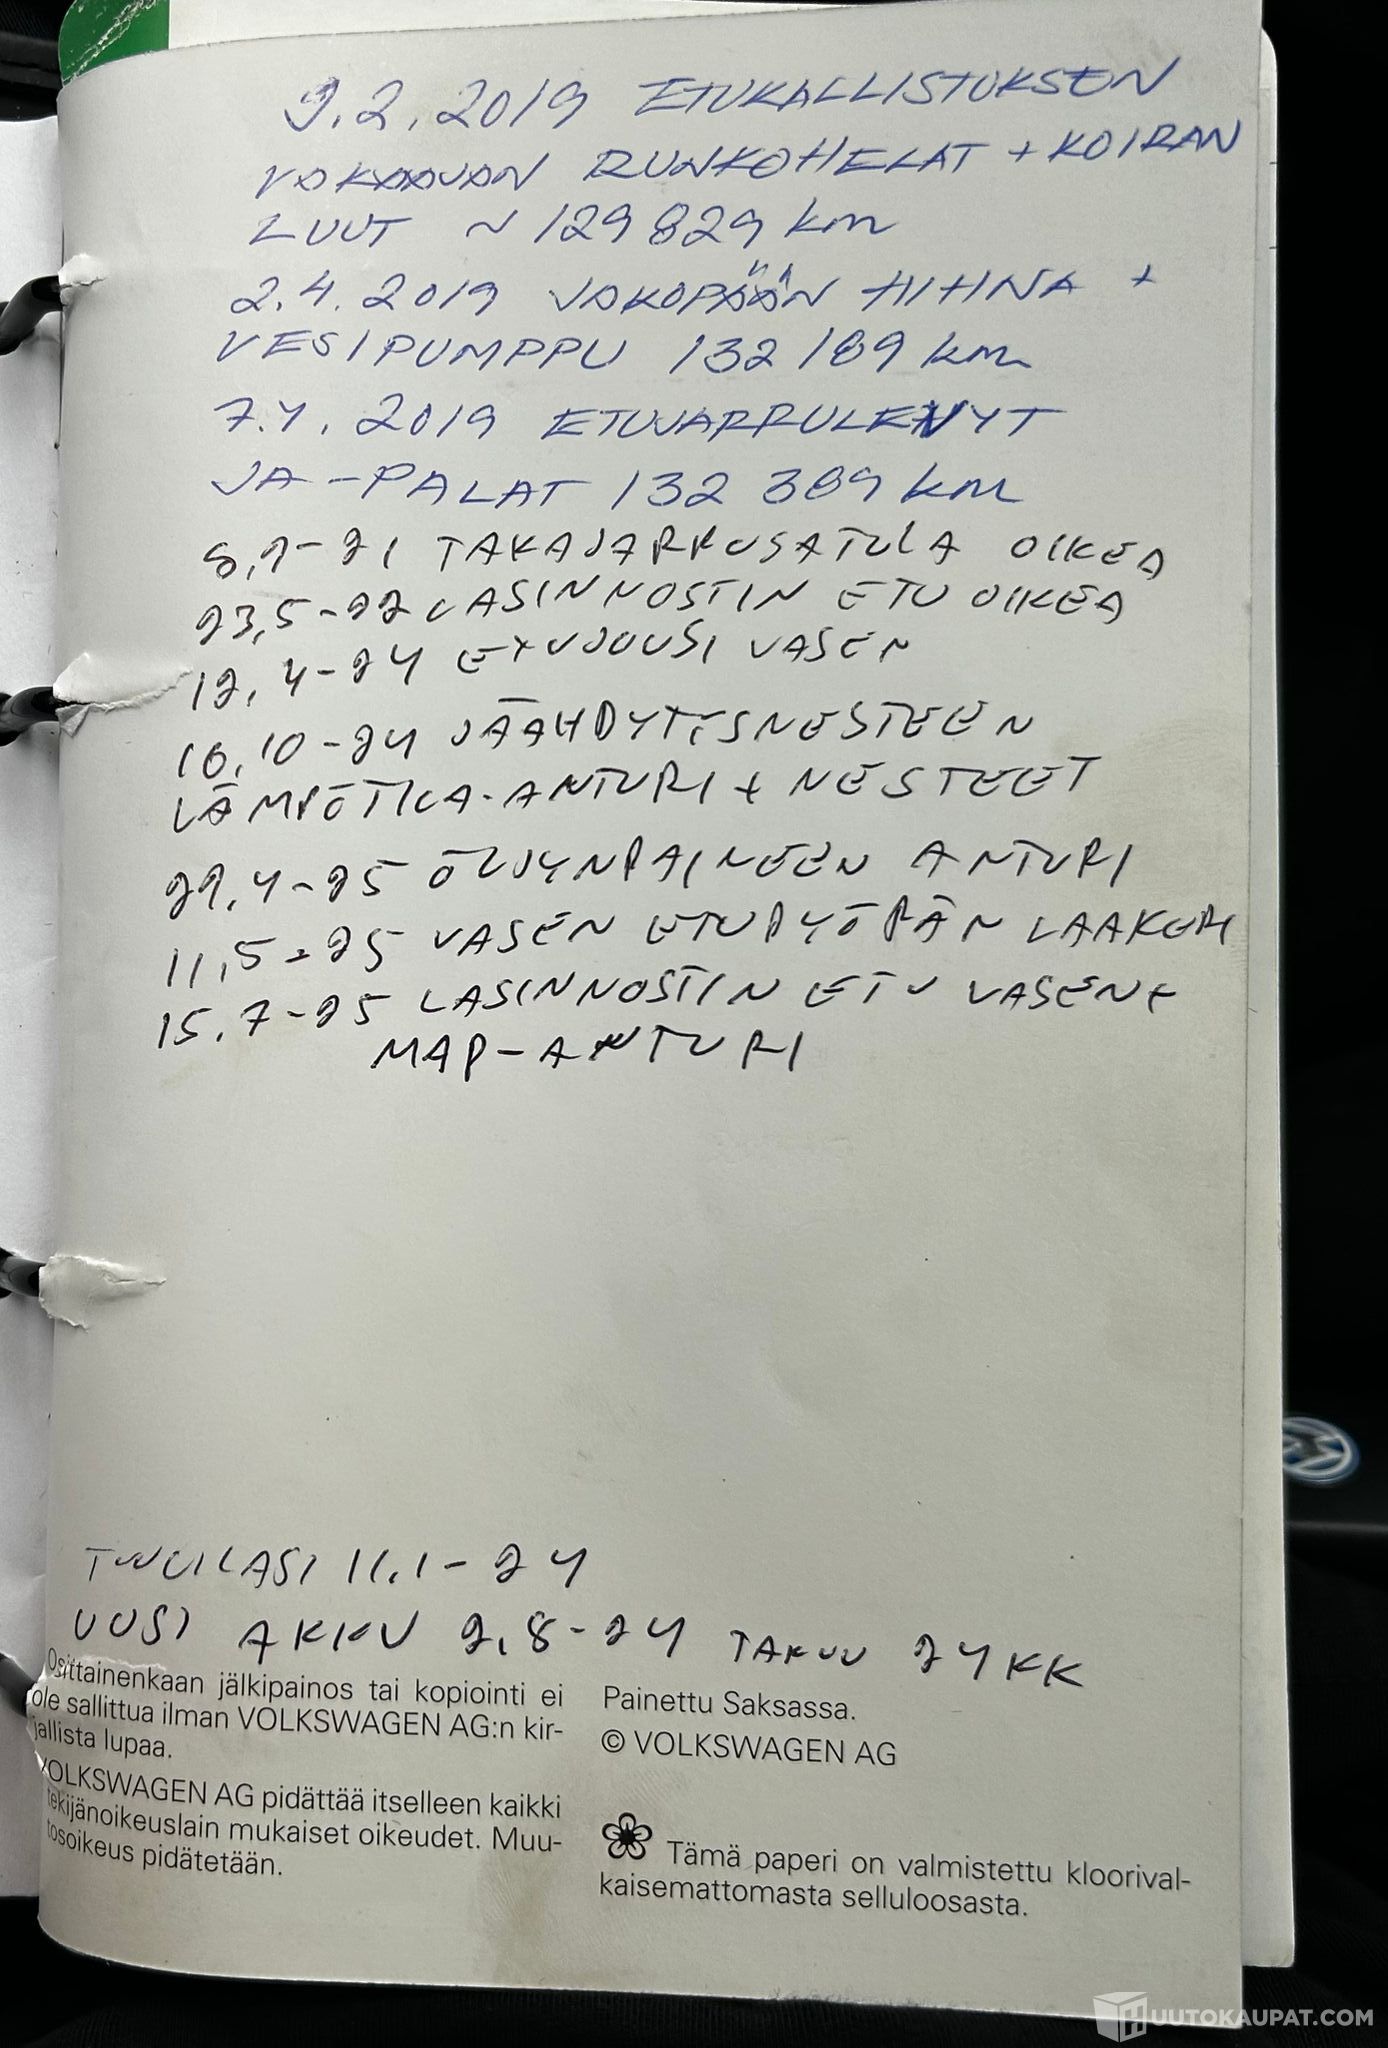 9.2.2019 ETUKALLISTUKSEN
VAKAAJAN RUNKOHELAT + KOIRAN
LUUT ~ 129 829 km
2.4.2019 JAKOPÄÄN HIHNA +
VESIPUMPPU 132 189 km
7.4.2019 ETUJARRULEVYT
JA -PALAT 132 389 km
TAKAJARRUSATULA OIKEA
23,5-22 LASINNOSTIN ETU OIKEA
12,4-24 ETUJOUSI VASEN
16,10-24 JÄÄHDYTYSNESTEEN
LÄMPÖTILA-ANTURI + NESTEET
29,4-25 ÖLJYNPAINEEN ANTURI
11,5-25 VASEN ETUPYÖRÄN LAAKERI
15.7-25 LASINNOSTIN ETU VASEN +
MAP-ANTURI
TUULILASI 11.1-24
UUSI AKKU 2,8-24 TAKUU 24KK
Osittainenkaan jälkipainos tai kopiointi ei
ole sallittua ilman VOLKSWAGEN AG:n kir-
jallista lupaa.
VOLKSWAGEN AG pidättää itselleen kaikki
tekijänoikeuslain mukaiset oikeudet. Muu-
tosoikeus pidätetään.
Painettu Saksassa.
© VOLKSWAGEN AG
Tämä paperi on valmistettu kloorival-
kaisemattomasta selluloosasta.
HUUTOKAUPAT.COM